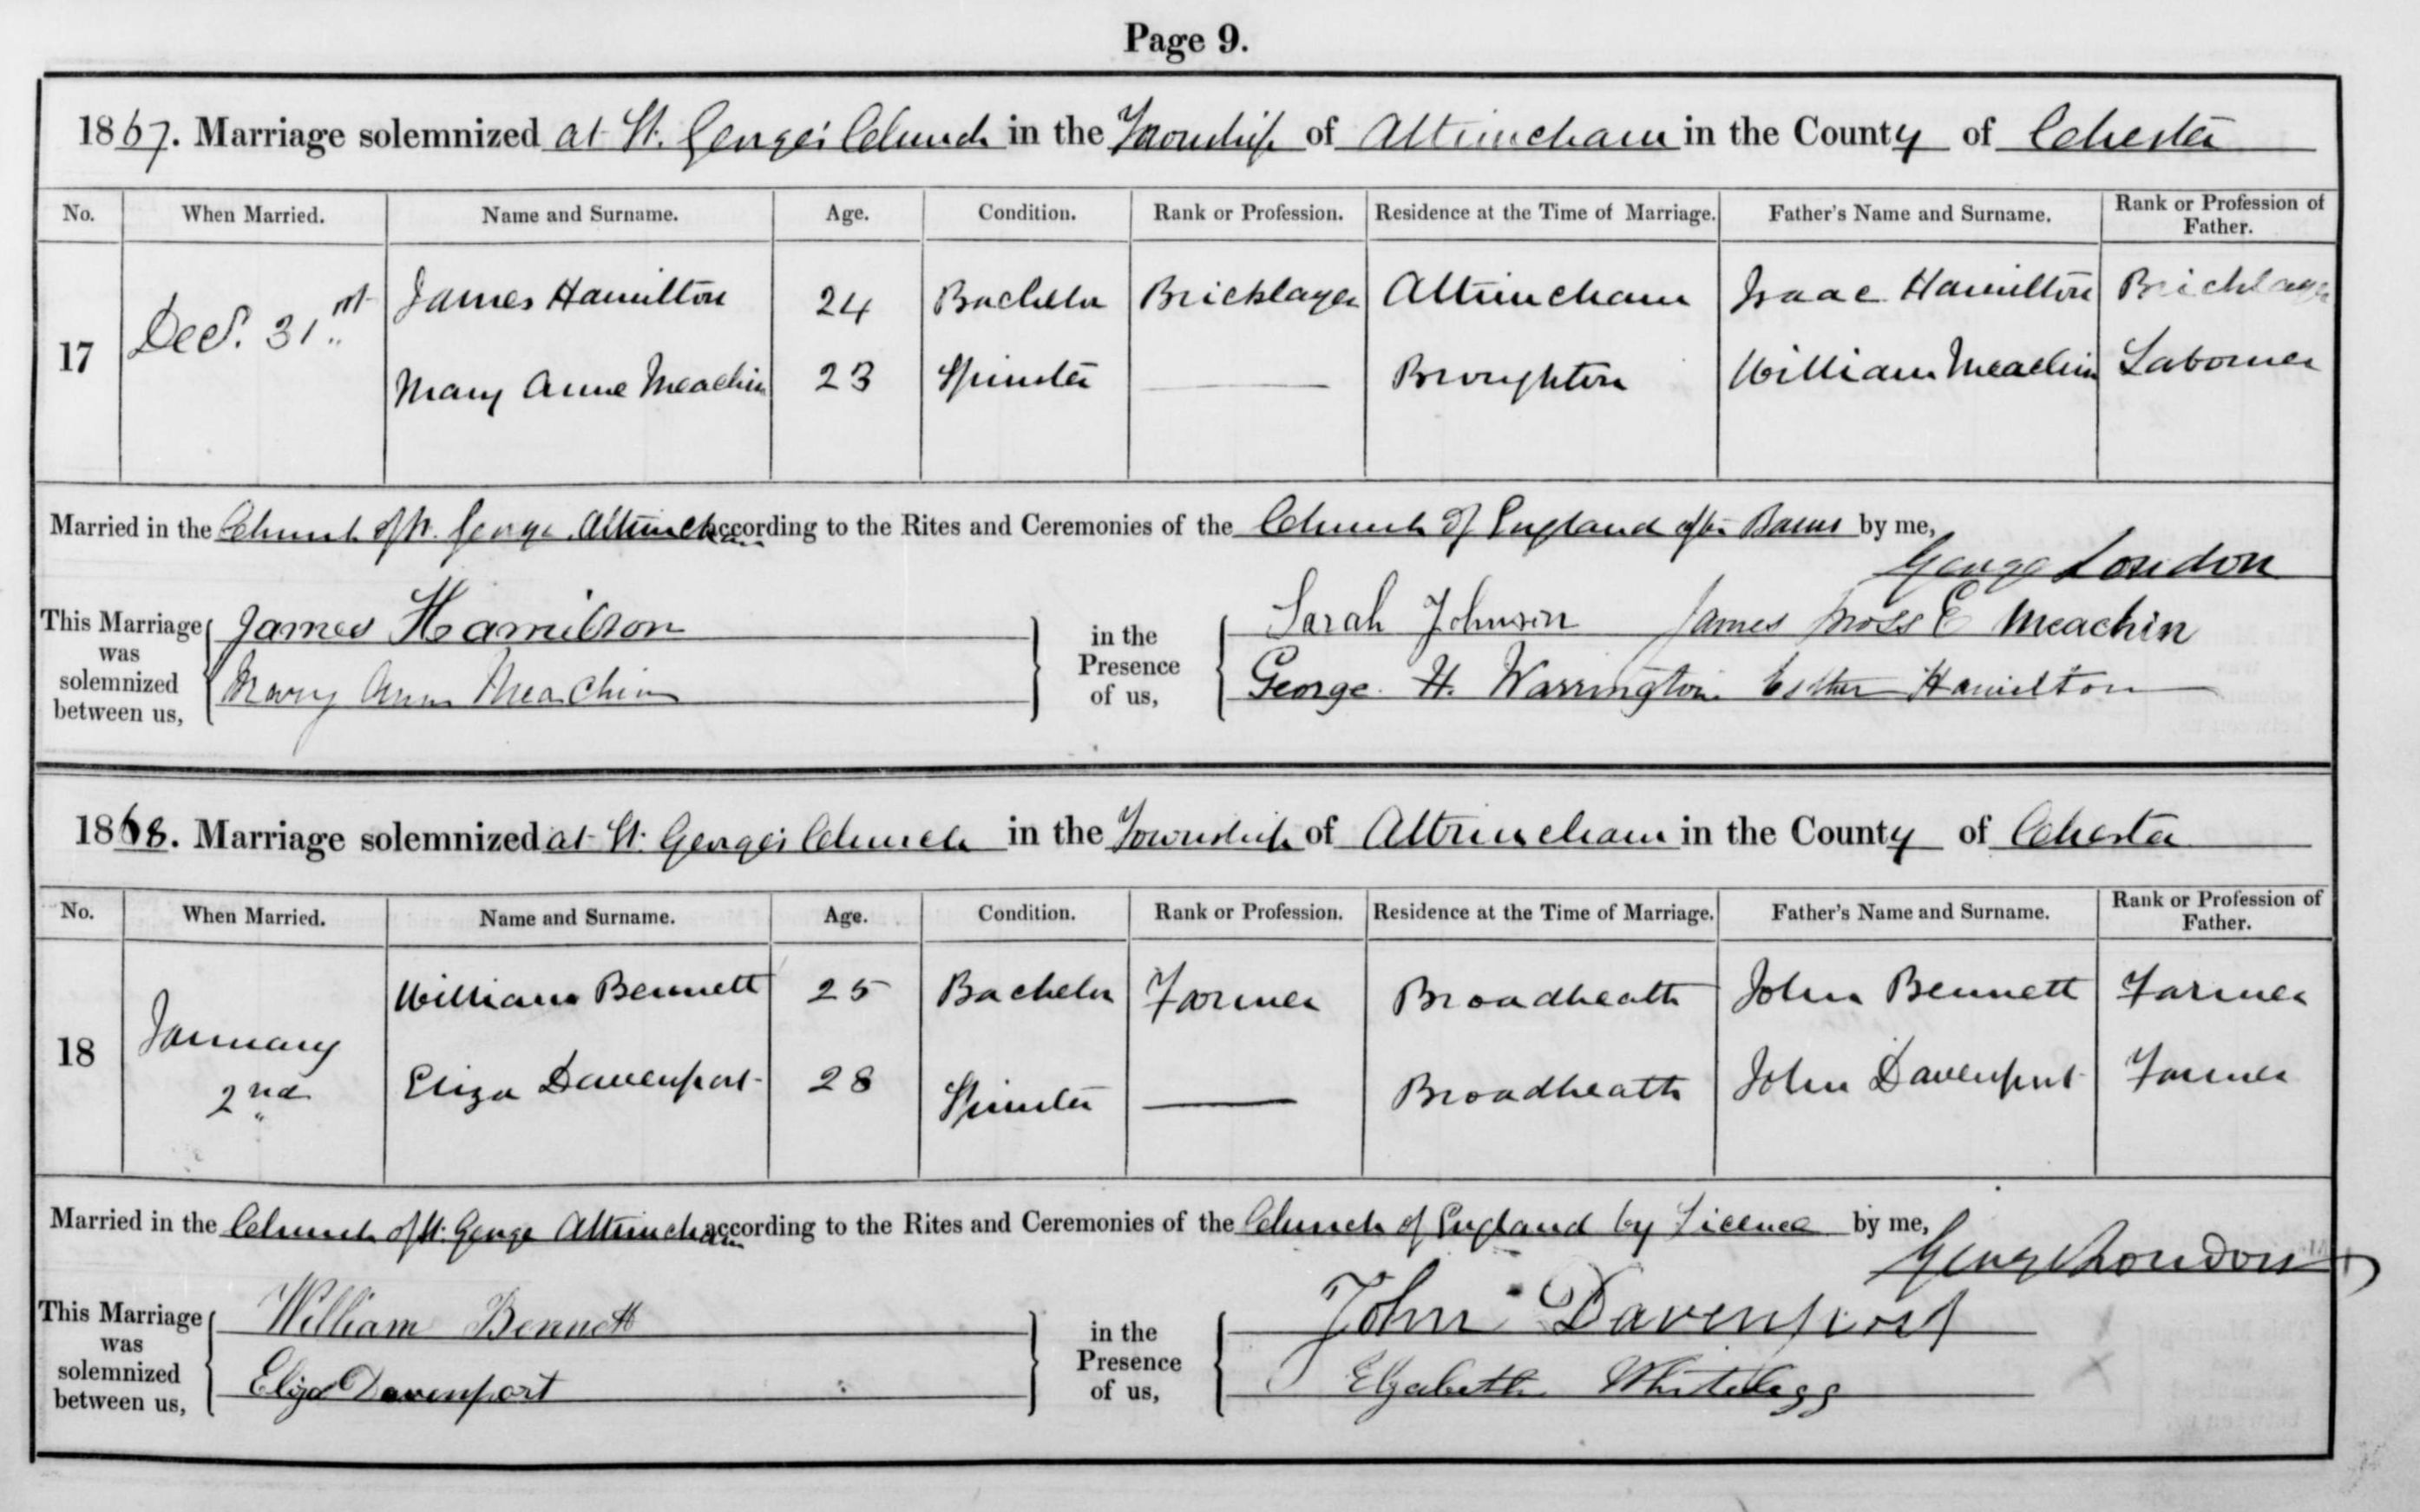 Page 9.
1867. Marriage solemnized at St. George's Church in the Township of Altrincham in the County of Chester
No. When Married. Name and Surname. Age. Condition. Rank or Profession. Residence at the Time of Marriage. Father's Name and Surname. Rank or Profession of Father.
17 Decr. 31st James Hamilton 24 Bachelor Bricklayer Altrincham Isaac Hamilton Bricklayer
Mary Anne Meachin 23 Spinster Broughton William Meachin Labourer
Married in the Church of St. George, Altrincham according to the Rites and Ceremonies of the Church of England after Banns by me,
George London
This Marriage was solemnized between us, James Hamilton in the Presence of us, Sarah Johnson James Moss E Meachin
Mary Ann Meachin George H. Warrington Esther Hamilton
1868. Marriage solemnized at St. George's Church in the Township of Altrincham in the County of Chester
No. When Married. Name and Surname. Age. Condition. Rank or Profession. Residence at the Time of Marriage. Father's Name and Surname. Rank or Profession of Father.
18 January 2nd William Bennett 25 Bachelor Farmer Broadheath John Bennett Farmer
Eliza Davenport 28 Spinster Broadheath John Davenport Farmer
Married in the Church of St. George Altrincham according to the Rites and Ceremonies of the Church of England by Licence by me,
George London
This Marriage was solemnized between us, William Bennett in the Presence of us, John Davenport
Eliza Davenport Elizabeth Whitelegg